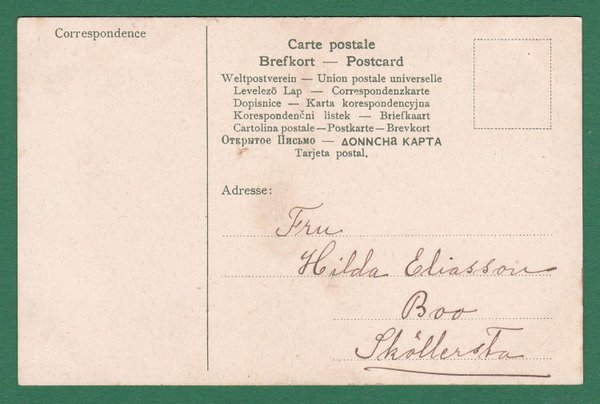 Correspondence
Carte postale
Brefkort — Postcard
Weltpostverein — Union postale universelle
Levelező Lap — Correspondenzkarte
Dopisnice — Karta korespondencyjna
Korespondenční listek — Briefkaart
Cartolina postale — Postkarte — Brevkort
Открытое Письмо — ΔONNCHa KAPTA
Tarjeta postal.
Adresse:
Fru
Hilda Eliasson
Boo
Sköllersta